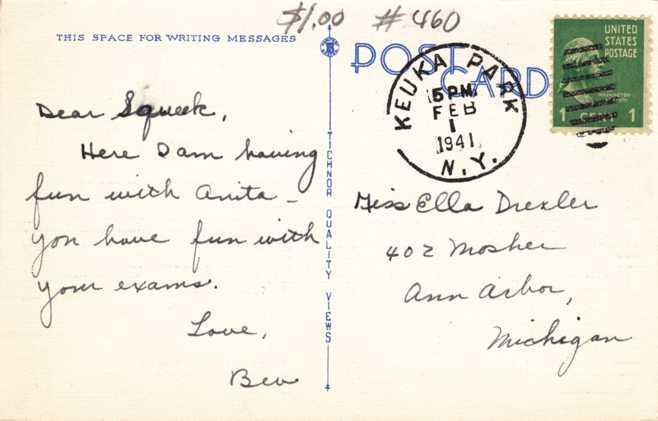 $1.00 #460
THIS SPACE FOR WRITING MESSAGES
POST CARD
UNITED
STATES
POSTAGE
WASHINGTON
1 CENT 1
KEUKA PARK
5 PM
FEB
1
1941
N.Y.
Dear Squeek,
Here I am having
fun with Anita –
you have fun with
your exams.
Love,
Bev
TICHNOR QUALITY VIEWS
Miss Ella Drexler
402 Mosher
Ann Arbor,
Michigan